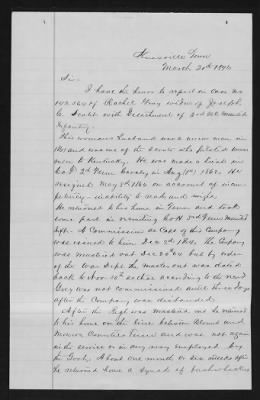 Knoxville Tenn
March 20th
Sir.
I have the honor to report in case no
of Rachel Gray widow of Joseph
Infantry.
This woman's husband was a union man in
1861 and was one of the Scouts who piloted Union
men to Kentucky. He was made a Lieut in
Co. 2nd Tenn Cavalry in Aug 1862. He
resigned May 1864 on account of incom
petency - inability to read and write.
He returned to his home in Tenn and took
some part in recruiting Co H 3rd Tenn Mounted
Infty. A Commission as Capt of this Company
was issued to him Dec 2nd 1864. The Company
was mustered out Dec 20th 64 but by order
of the War Dept the muster out was dated
back to Nov 30th so that according to the record
Gray was not commissioned until three days
after the Company was disbanded.
After the Regt was mustered out he returned
to his home on the line between Blount and
Monroe Counties Tenn and was not
again in the service or in any way employed by
the Govt. About one month or six weeks after
he returned home a squad of bushwhackers